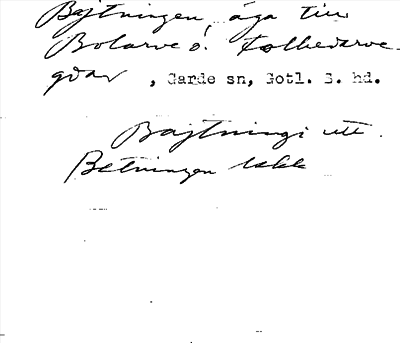 Bajtningen, äga till
Bolarve o. Folkedarve
gdar, Garde sn, Gotl. S. hd.
Bajtningi utt.
Betningen lakk